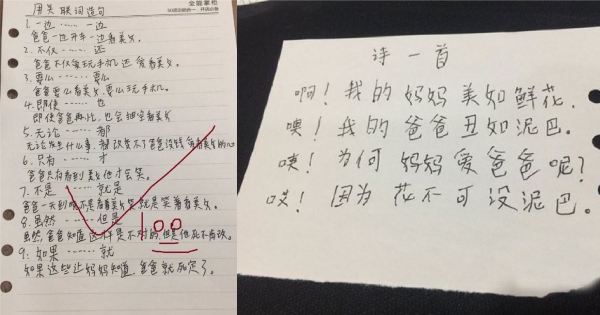 用关联词造句
1.一边……一边
爸爸一边开车一边看美女。
2.不仅……还
爸爸不仅爱玩手机还爱看美女。
3.要么……要么
爸爸要么看美女,要么玩手机。
4.即使……也
即使爸爸再忙,也会抽空看美女
5.无论……都
无论发生什么事,都改变不了爸爸没钱爱看美女的心
6.只有……才
爸爸只有看到美女他才会笑。
7.不是……就是
爸爸一天到晚不是看着美女笑就是笑着看美女。
8.虽然……但是
虽然爸爸知道这样是不对的,但是他死不悔改。
9.如果……就
如果这些让妈妈知道,爸爸就死定了。
100
诗一首
啊!我的妈妈美如鲜花,
噢!我的爸爸丑如泥巴。
咦!为何妈妈爱爸爸呢?
哎!因为花不可没泥巴。